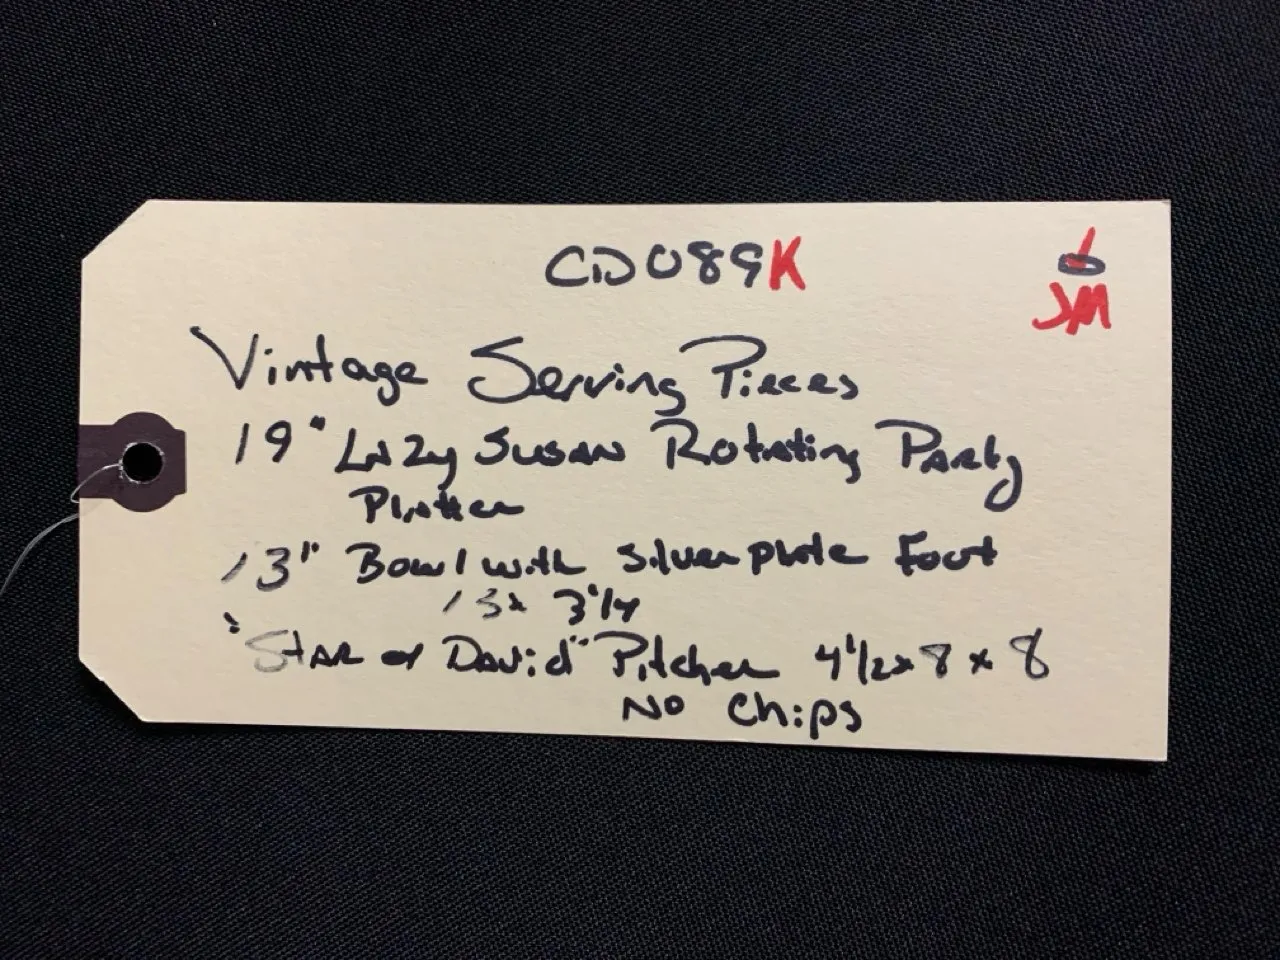 CD089K
JM
Vintage Serving Pieces
19" Lazy Susan Rotating Party
Platter
13" Bowl with Silverplate Foot
13 x 3 1/4
"Star of David" Pitcher 4 1/2 x 8 x 8
No Chips